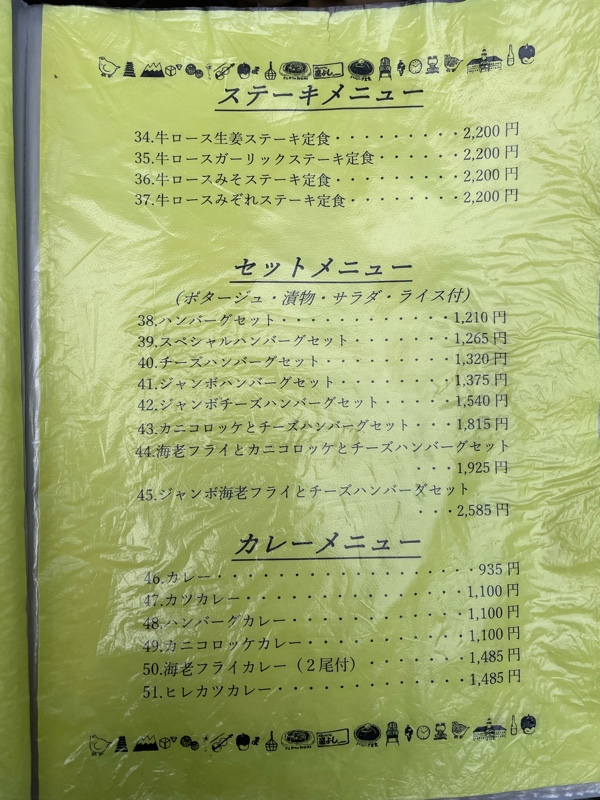 ステーキメニュー
34.牛ロース生姜ステーキ定食・・・・・・・・・2,200 円
35.牛ロースガーリックステーキ定食・・・・・・2,200 円
36.牛ロースみそステーキ定食・・・・・・・・・2,200 円
37.牛ロースみぞれステーキ定食・・・・・・・・2,200 円
セットメニュー
（ポタージュ・漬物・サラダ・ライス付）
38.ハンバーグセット・・・・・・・・・・・・1,210 円
39.スペシャルハンバーグセット・・・・・・・1,265 円
40.チーズハンバーグセット・・・・・・・・・1,320 円
41.ジャンボハンバーグセット・・・・・・・・1,375 円
42.ジャンボチーズハンバーグセット・・・・・1,540 円
43.カニコロッケとチーズハンバーグセット・・・1,815 円
44.海老フライとカニコロッケとチーズハンバーグセット
・・・1,925 円
45.ジャンボ海老フライとチーズハンバーグセット
・・・2,585 円
カレーメニュー
46.カレー・・・・・・・・・・・・・・・・・935 円
47.カツカレー・・・・・・・・・・・・・・・1,100 円
48.ハンバーグカレー・・・・・・・・・・・・1,100 円
49.カニコロッケカレー・・・・・・・・・・・1,100 円
50.海老フライカレー（２尾付）・・・・・・・1,485 円
51.ヒレカツカレー・・・・・・・・・・・・・1,485 円